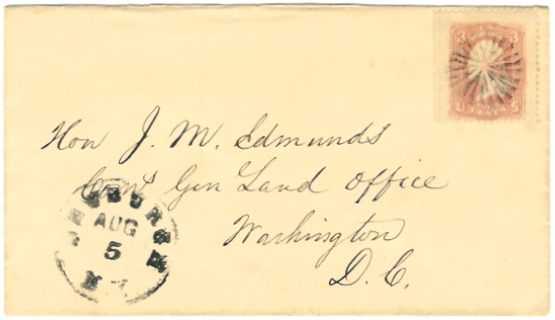 Hon J. M. Edmunds
Com^r Gen Land Office
Washington
D. C.
AUG
5